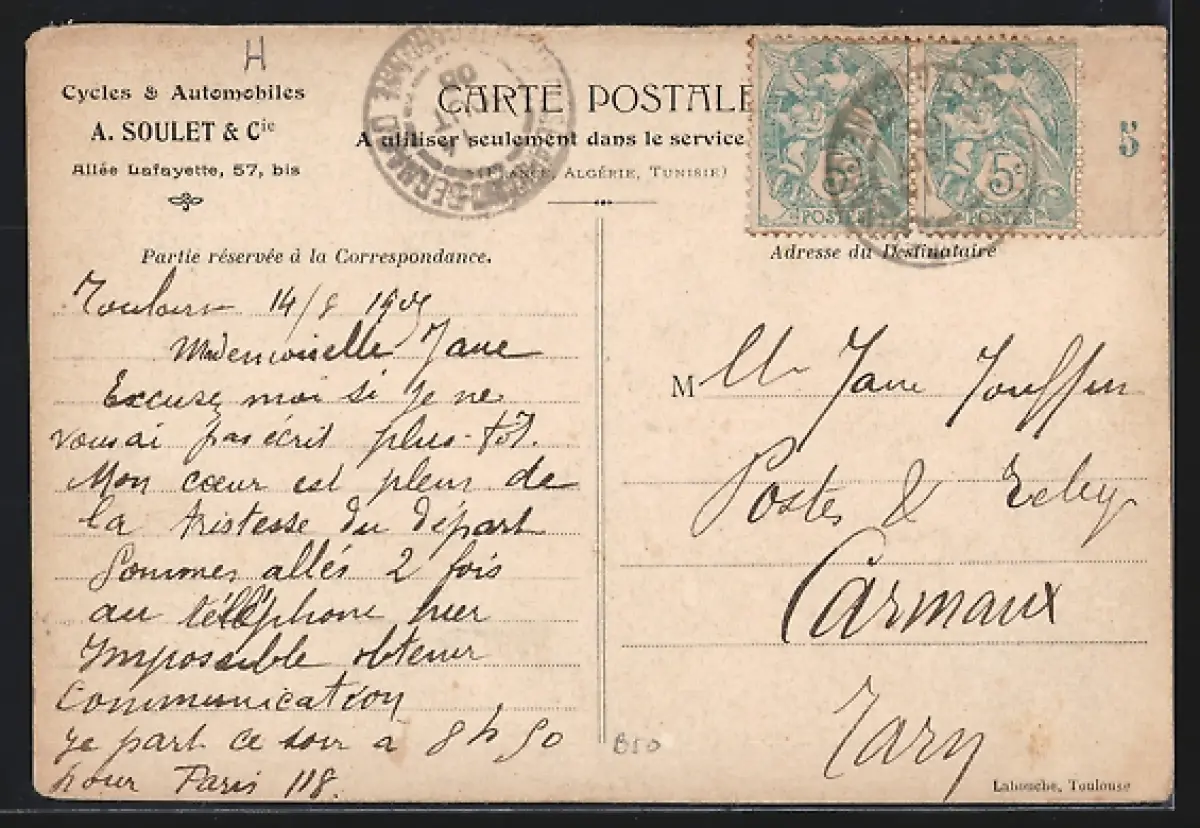 H
Cycles & Automobiles
A. SOULET & Cie
Allée Lafayette, 57, bis
CARTE POSTALE
A utiliser seulement dans le service
(FRANCE, ALGÉRIE, TUNISIE)
5
5c
POSTES
POSTES
Partie réservée à la Correspondance.
Adresse du Destinataire
14/8
Mademoiselle Jane
Excusez moi si je ne
vous ai pas écrit plus-tôt.
Mon cœur est plein de
la tristesse du départ
Sommes allés 2 fois
au téléphone hier
Impossible obtenir
communication
Je part ce soir à 8h 50
pour Paris 118.
M lle Jane
Postes &
Carmaux
Tarn
B50
Labouche, Toulouse